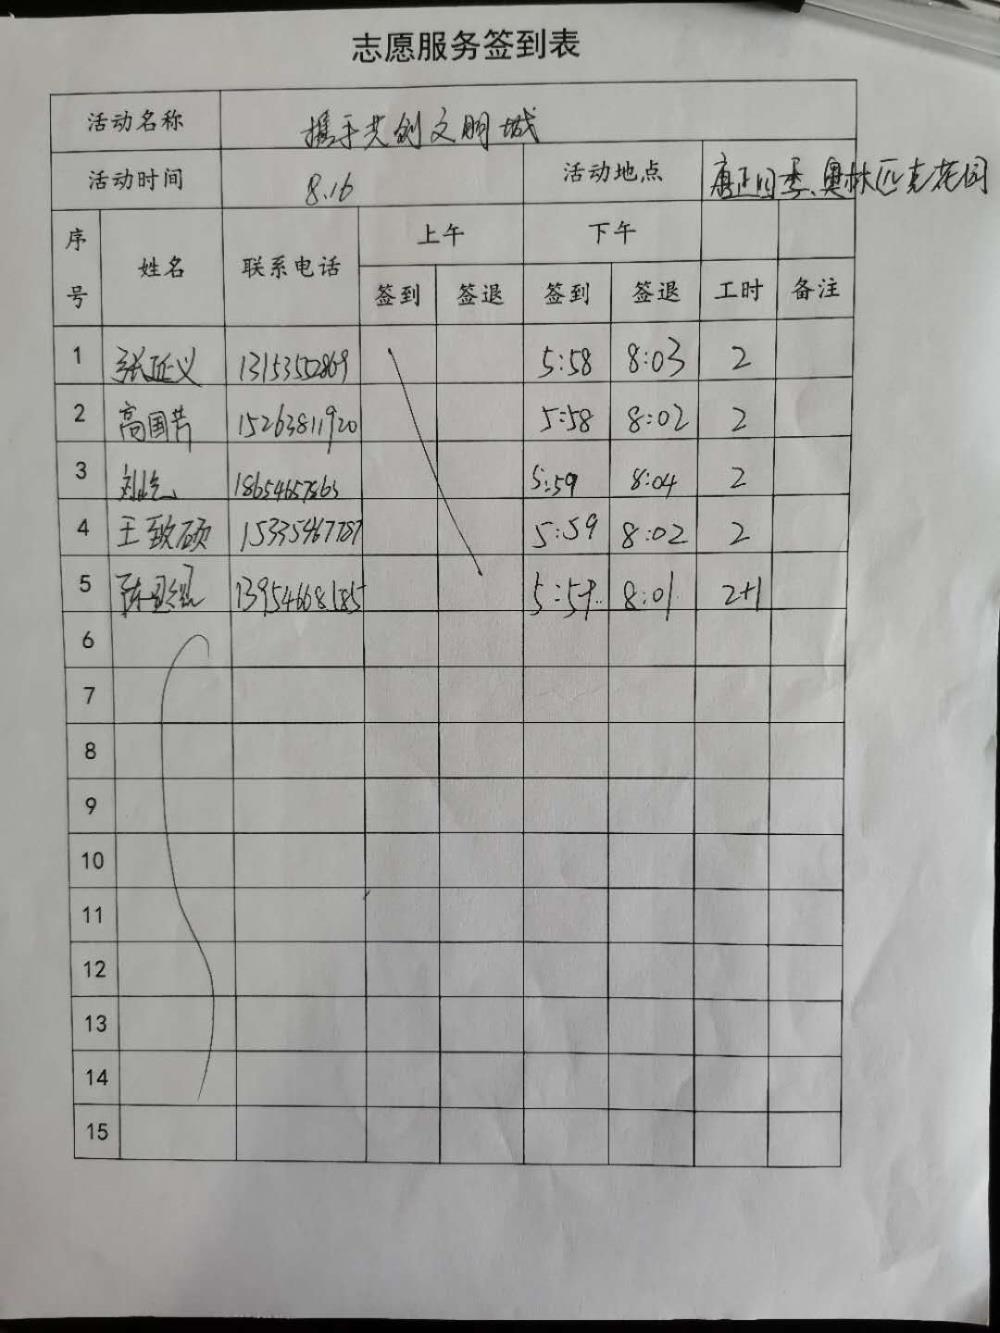 志愿服务签到表
活动名称 携手共创文明城
活动时间 8.16 活动地点 唐正四季、奥林匹克花园
序号 姓名 联系电话 上午 下午
签到 签退 签到 签退 工时 备注
1 张延义 13153552869 5:58 8:03 2
2 高国芳 15263811920 5:58 8:02 2
3 18654657865 5:59 8:04 2
4 王致硕 15335467787 5:59 8:02 2
5 13954668185 5:59 8:01 2+1
6
7
8
9
10
11
12
13
14
15